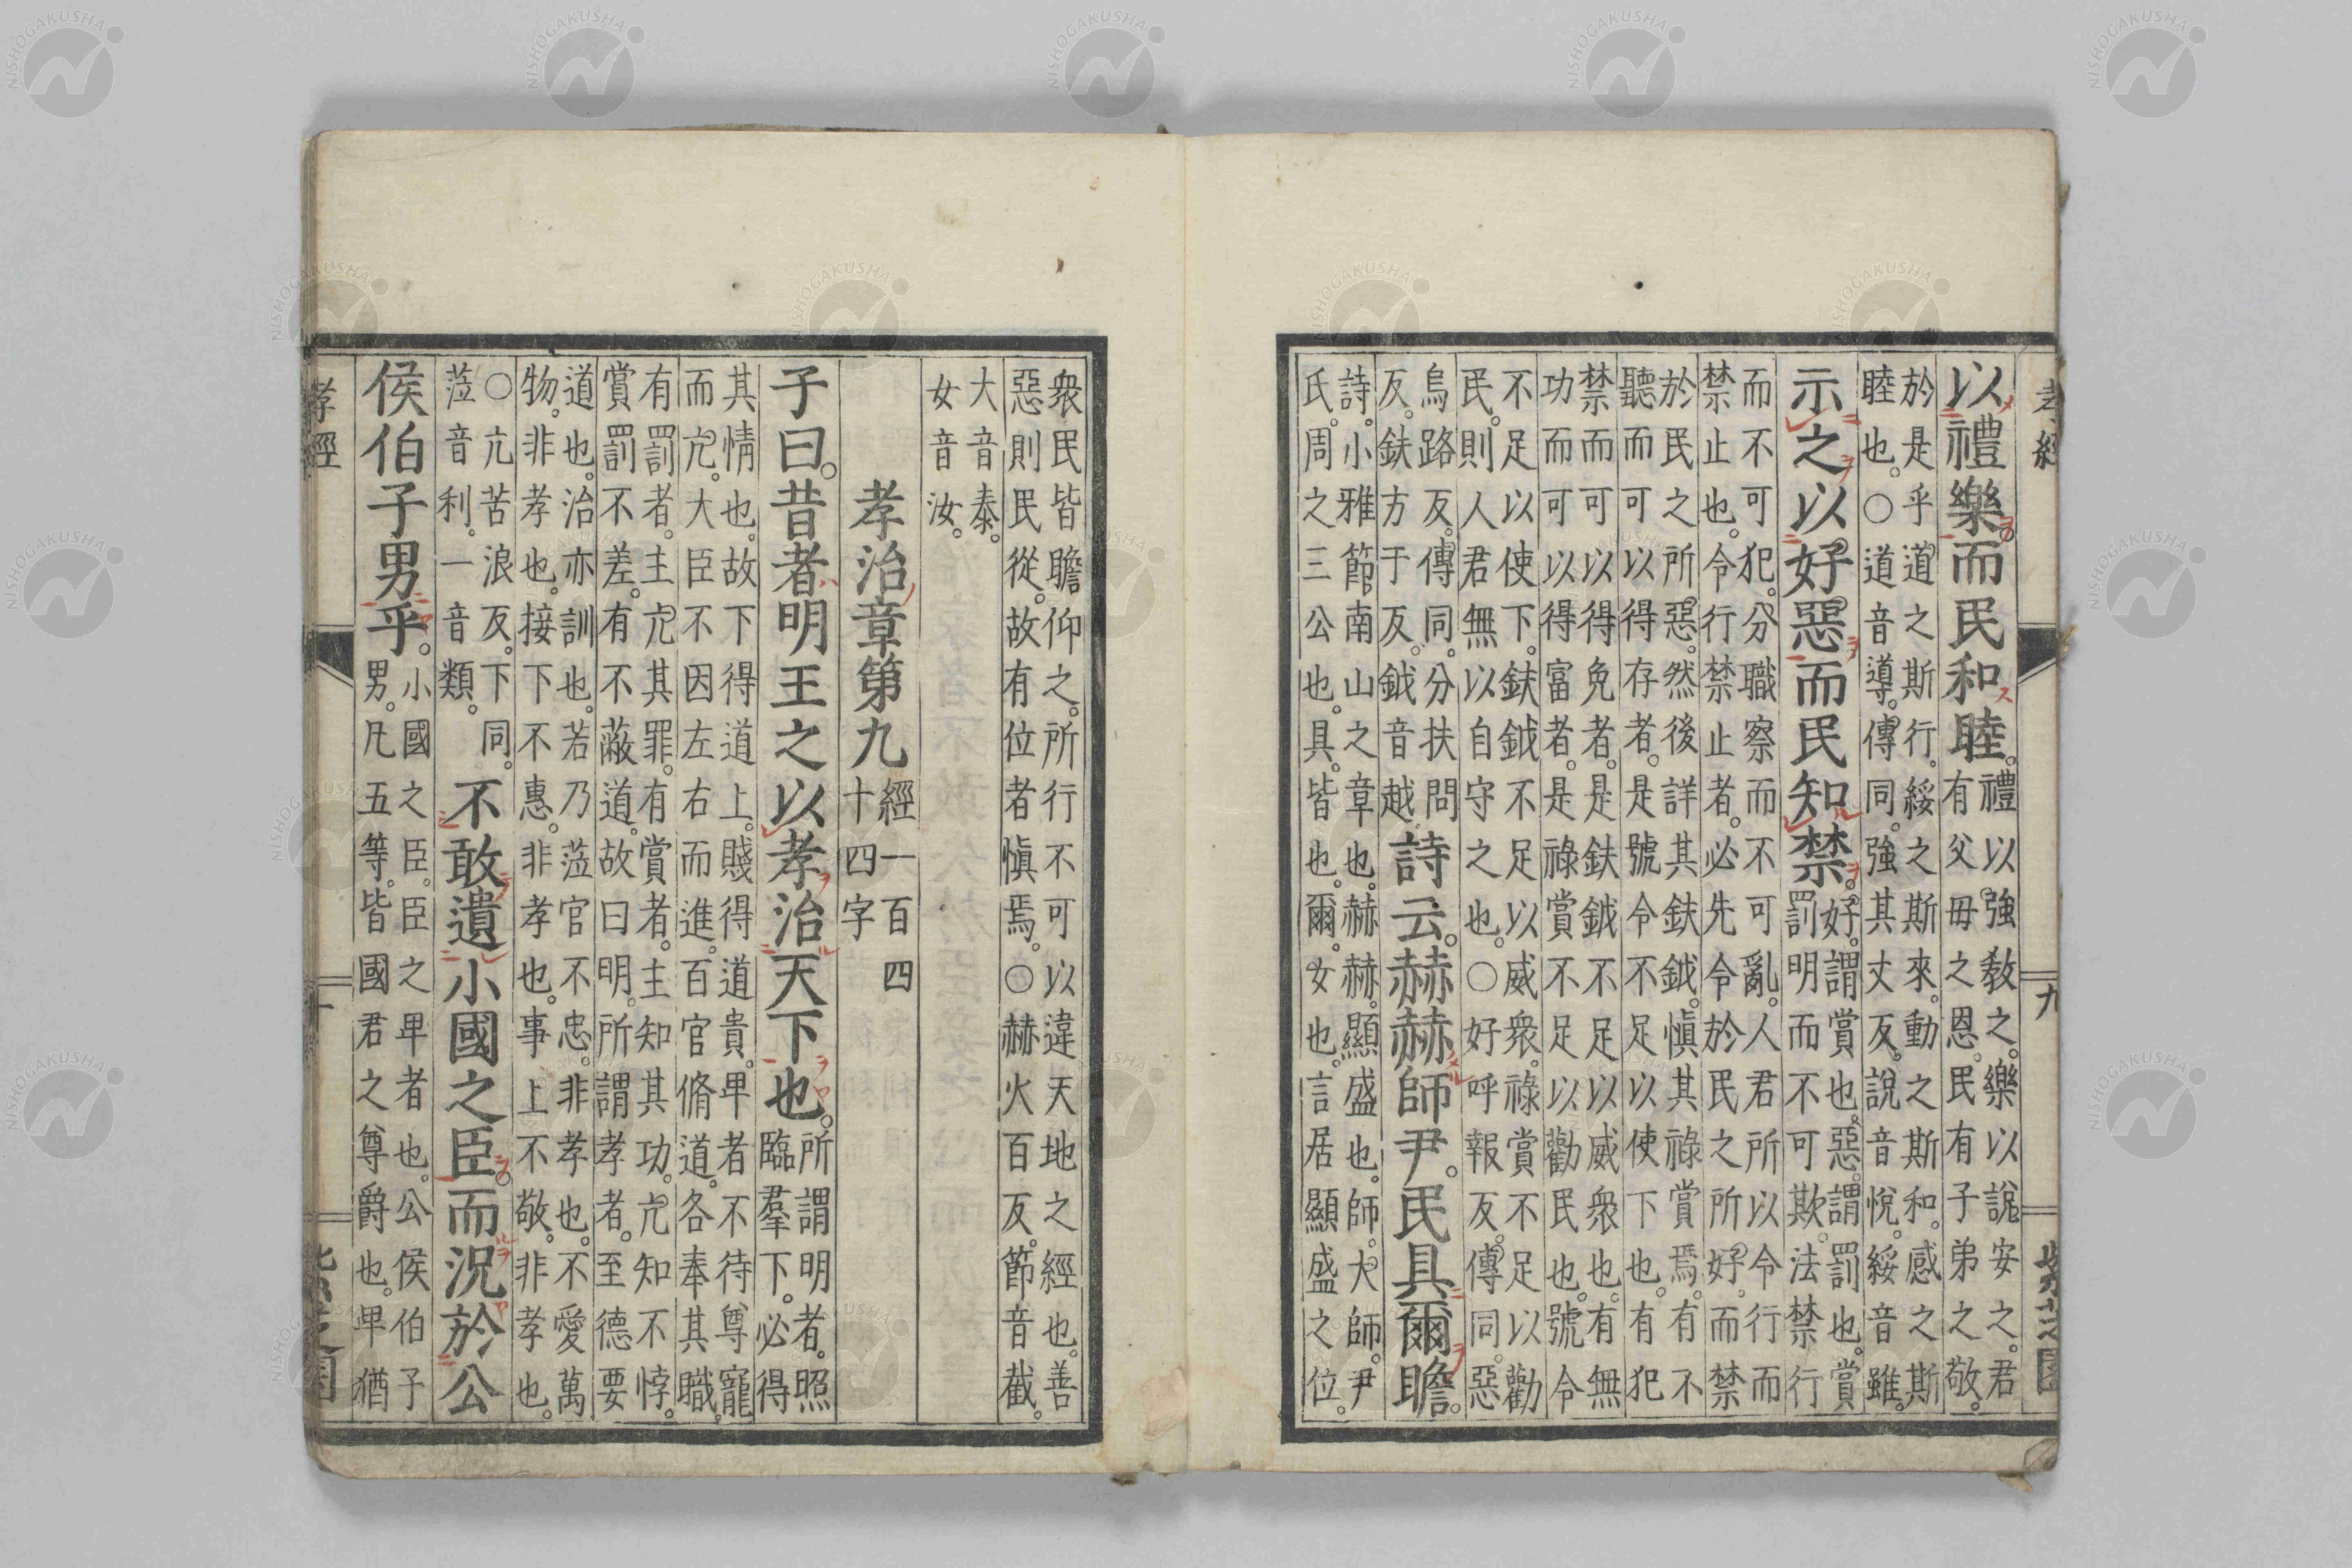 孝經 九 紫芝園
以禮樂。而民和睦。禮以強教之。樂以說安之。君
有父母之恩。民有子弟之敬。
於是乎道之斯行。綏之斯來。動之斯和。感之斯
睦也。○道音導。傳同。強其丈反。說音悅。綏音雖。
示之以好惡。而民知禁。好。謂賞也。惡。謂罰也。賞
罰明而不可欺。法禁行
而不可犯。分職察而不可亂。人君所以令行而
禁止也。令行禁止者。必先令於民之所好。而禁
於民之所惡。然後詳其鈇鉞。愼其祿賞焉。有不
聽而可以得存者。是號令不足以使下也。有犯
禁而可以得免者。是鈇鉞不足以威衆也。有無
功而可以得富者。是祿賞不足以勸民也。號令
不足以使下。鈇鉞不足以威衆。祿賞不足以勸
民。則人君無以自守之也。○好呼報反。傳同。惡
烏路反。傳同。分扶問
反。鈇方于反。鉞音越。
詩云。赫赫師尹。民具爾瞻。
詩。小雅節南山之章也。赫赫。顯盛也。師。大師。尹
氏。周之三公也。具。皆也。爾。女也。言居顯盛之位。
衆民皆瞻仰之。所行不可以違天地之經也。善
惡則民從。故有位者愼焉。○赫火百反。節音截。
大音泰。
女音汝。
孝治章第九 經一百四
十四字
子曰。昔者明王之以孝治天下也。所謂明者。照
臨羣下。必得
其情也。故下得道上。賤得道貴。卑者不待尊寵
而亢。大臣不因左右而進。百官脩道。各奉其職。
有罰者。主亢其罪。有賞者。主知其功。亢知不悖。
賞罰不差。有不蔽道。故曰明。所謂孝者。至德要
道也。治亦訓也。若乃涖官不忠。非孝也。不愛萬
物。非孝也。接下不惠。非孝也。事上不敬。非孝也。
○亢苦浪反。下同。
涖音利。一音類。
不敢遺小國之臣。而況於公
侯伯子男乎。小國之臣。臣之卑者也。公侯伯子
男。凡五等。皆國君之尊爵也。卑猶
孝經 十 紫芝園